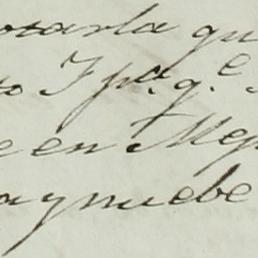 osarla qu
to Y pa. q.e
e en Mej
a y nuebe